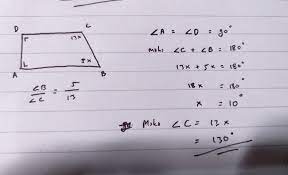 D C
13x
5x
A B
∠B / ∠C = 5 / 13
∠A = ∠D = 90°
Maka ∠C + ∠B = 180°
13x + 5x = 180°
18x = 180°
x = 10°
Maka ∠C = 13x
= 130°